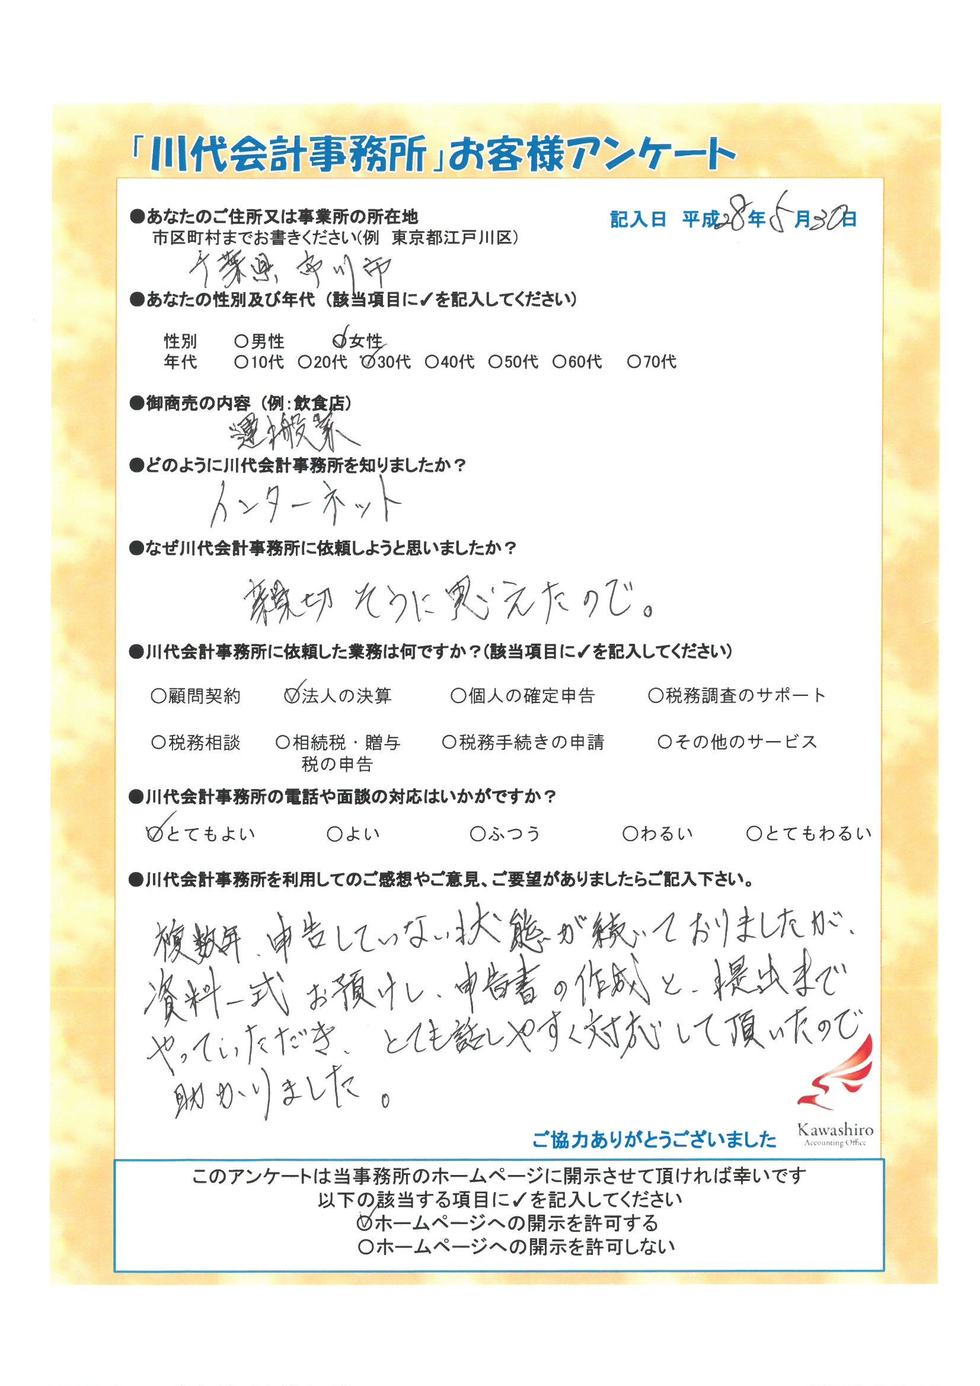 「川代会計事務所」お客様アンケート
●あなたのご住所又は事業所の所在地
記入日 平成28年5月30日
市区町村までお書きください(例 東京都江戸川区)
千葉県市川市
●あなたの性別及び年代 (該当項目に✓を記入してください)
性別 ○男性 ✓女性
年代 ○10代 ○20代 ✓30代 ○40代 ○50代 ○60代 ○70代
●御商売の内容 (例:飲食店)
運搬業
●どのように川代会計事務所を知りましたか?
インターネット
●なぜ川代会計事務所に依頼しようと思いましたか?
親切そうに思えたので。
●川代会計事務所に依頼した業務は何ですか?(該当項目に✓を記入してください)
○顧問契約 ✓法人の決算 ○個人の確定申告 ○税務調査のサポート
○税務相談 ○相続税・贈与 ○税務手続きの申請 ○その他のサービス
税の申告
●川代会計事務所の電話や面談の対応はいかがですか?
✓とてもよい ○よい ○ふつう ○わるい ○とてもわるい
●川代会計事務所を利用してのご感想やご意見、ご要望がありましたらご記入下さい。
複数年、申告していない状態が続いておりましたが、
資料一式お預けし、申告書の作成と、提出まで
やっていただき、とても話しやすく対応して頂いたので
助かりました。
Kawashiro
Accounting Office
ご協力ありがとうございました
このアンケートは当事務所のホームページに開示させて頂ければ幸いです
以下の該当する項目に✓を記入してください
✓ホームページへの開示を許可する
○ホームページへの開示を許可しない